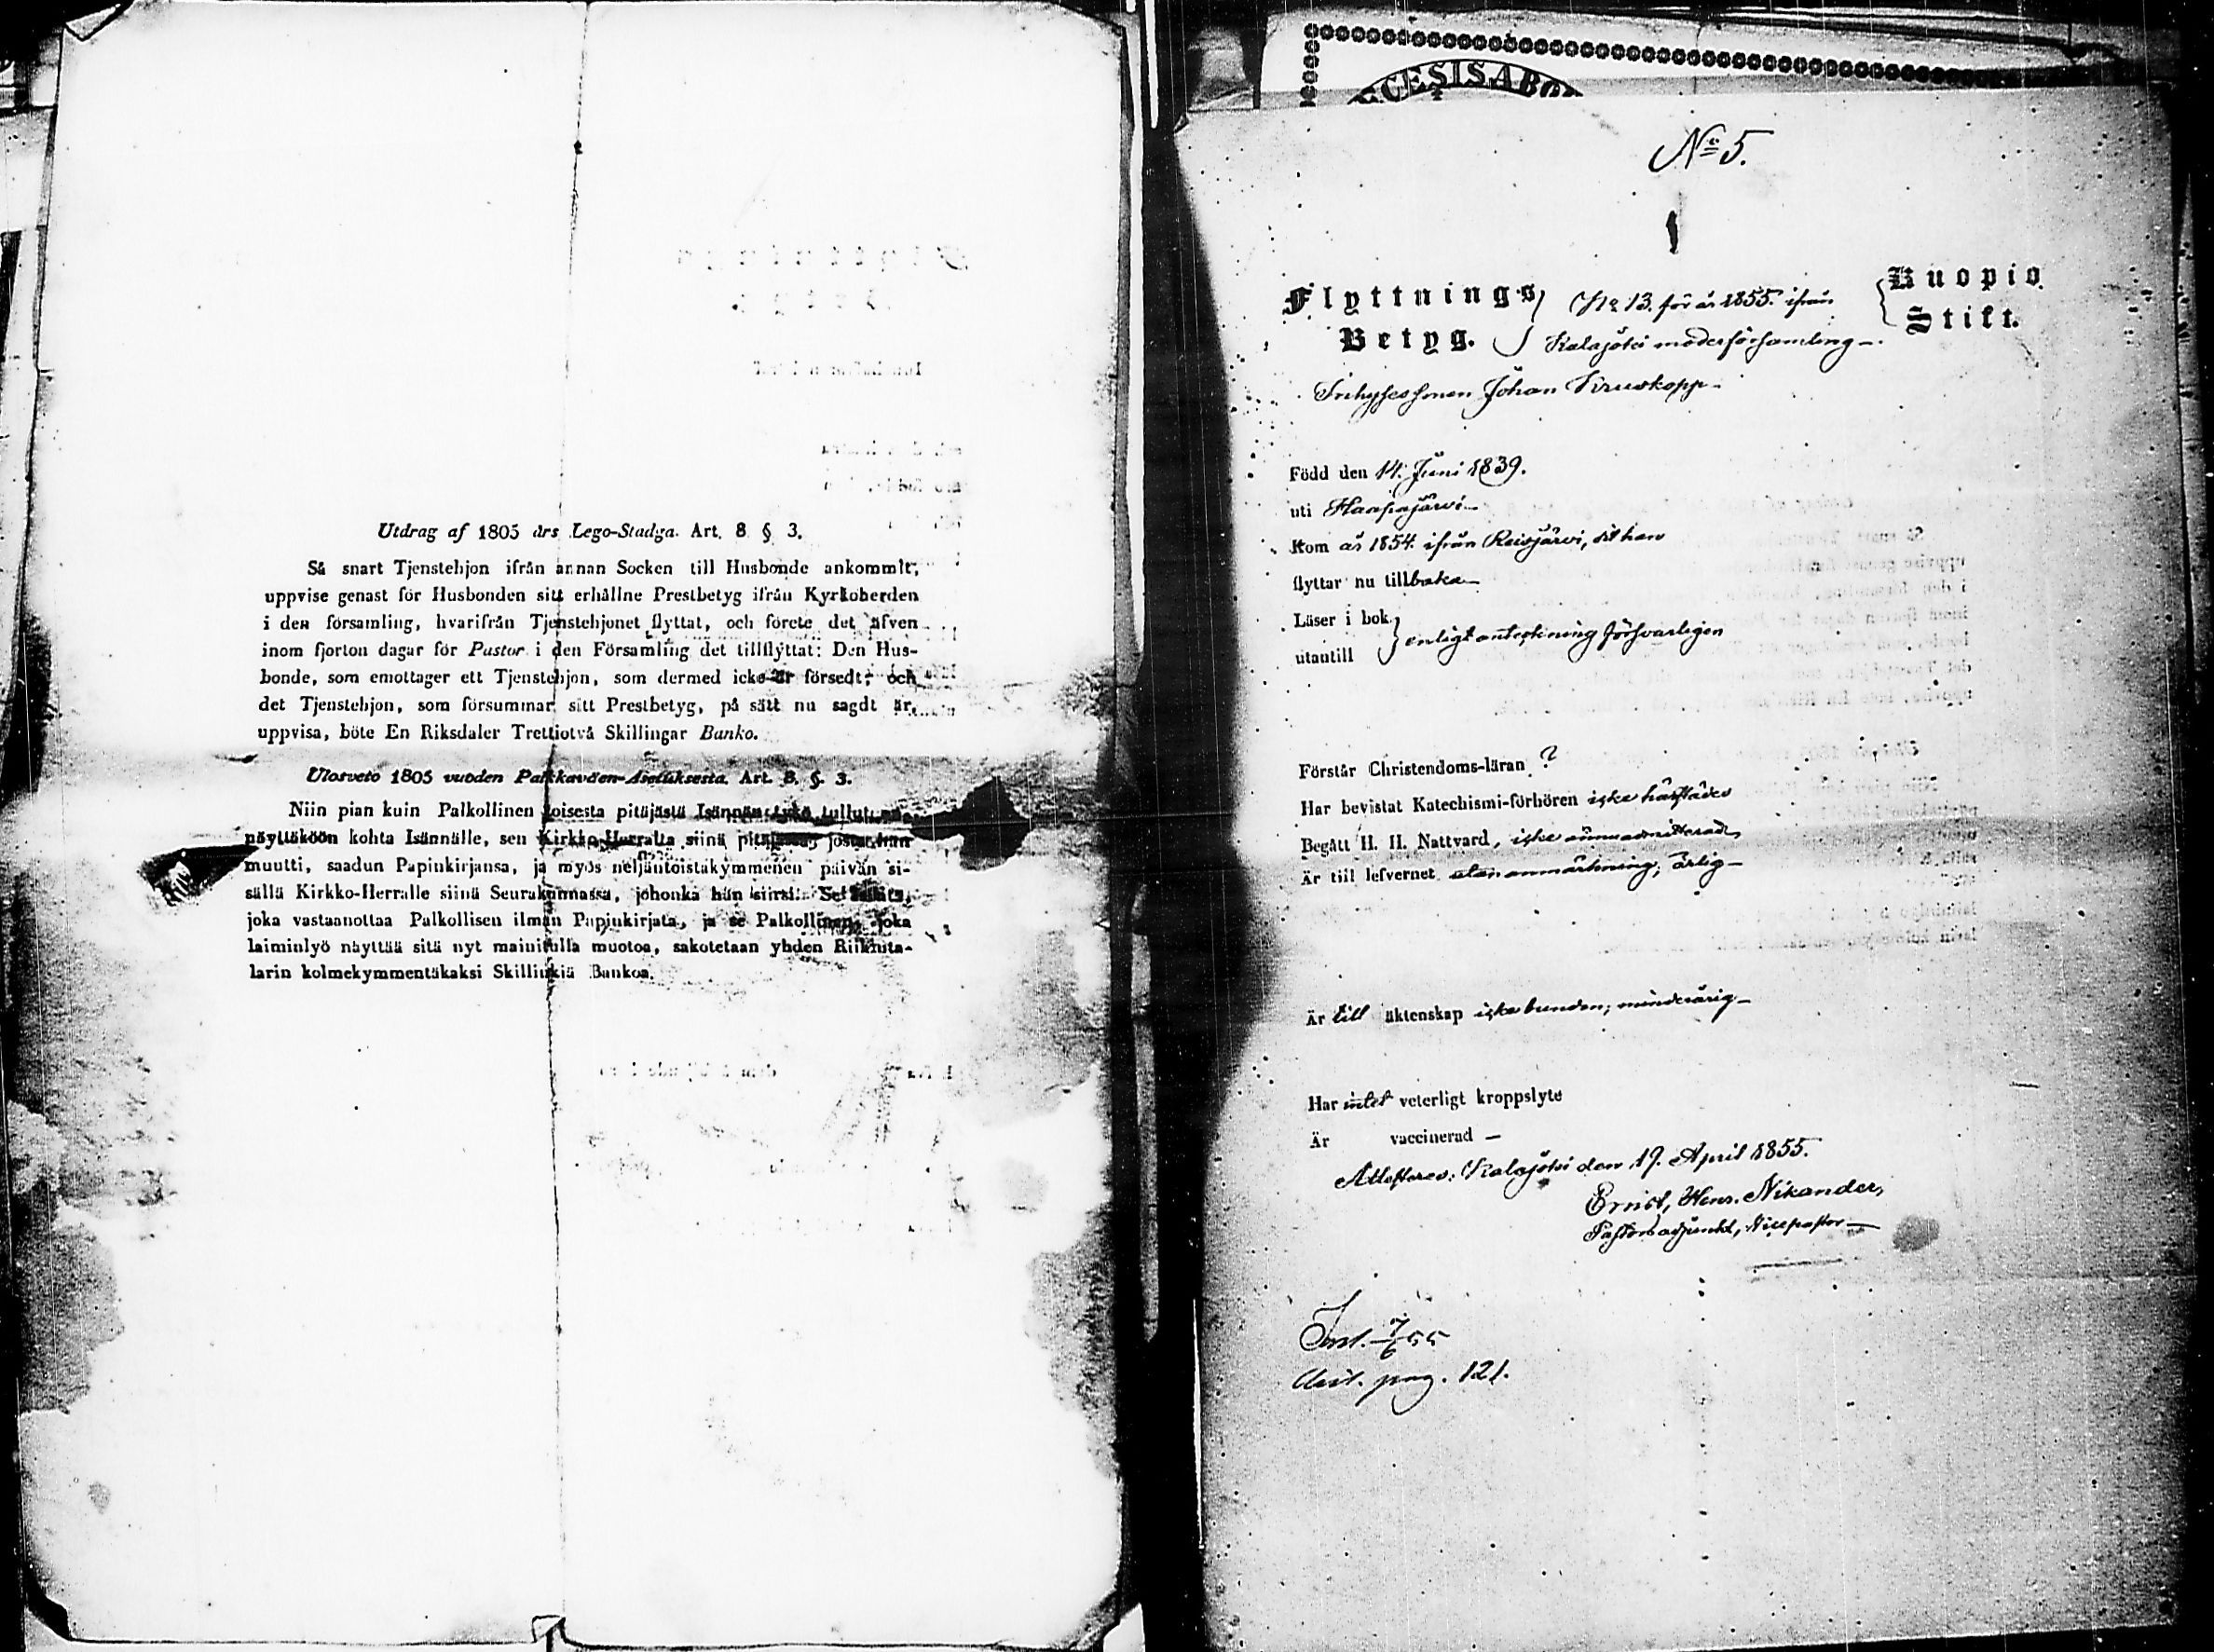 Utdrag af 1805 års Lego-Stadga. Art. 8 § 3.
Så snart Tjenstehjon ifrån annan Socken till Husbonde ankommit,
uppvise genast för Husbonden sitt erhållne Prestbetyg ifrån Kyrkoherden
i den församling, hvarifrån Tjenstehjonet flyttat, och förete det äfven
inom fjorton dagar för Pastor i den Församling det tillflyttat: Den Hus-
bonde, som emottager ett Tjenstehjon, som dermed icke är försedt; och
det Tjenstehjon, som försummar sitt Prestbetyg, på sätt nu sagdt är,
uppvisa, böte En Riksdaler Trettiotvå Skillingar Banko.
Ulosveto 1805 vuoden Palkkaväen-Asetuksesta. Art. 8. §. 3.
Niin pian kuin Palkollinen toisesta pitäjästä Isännän tykö tullut
näyttäköön kohta Isännälle, sen Kirkko-Herralta siinä pitäjässä, josta hän
muutti, saadun Papinkirjansa, ja myös neljäntoistakymmenen päivän si-
sällä Kirkko-Herralle siinä Seurakunnassa, johonka hän siirsi. Se
joka vastaanottaa Palkollisen ilman Papinkirjata, ja se Palkollinen, joka
laiminlyö näyttää sitä nyt mainitulla muotoa, sakotetaan yhden Riikinta-
larin kolmekymmentäkaksi Skillinkiä Bankoa.
CESISABO
No 5.
Flyttnings No 13. för år 1855. ifrån Kuopio
Betyg. Kalajoki moderförsamling Stift.
Johan Kruskopp
Född den 14. Juni 1839.
uti Haapajärvi
Kom år 1854. ifrån Reisjärvi, dit han
flyttar nu tillbaka
Läser i bok
utantill enligt anteckning försvarligen
Förstår Christendoms-läran ?
Har bevistat Katechismi-förhören icke härstädes
Begått H. H. Nattvard, icke ännu admitterad,
Är till lefvernet utan anmärkning, ärlig
Är till äktenskap icke bunden; minderårig
Har intet veterligt kroppslyte
Är vaccinerad —
Attesteras: Kalajoki den 19. April 1855.
Ernst, Henr. Nikander,
Pastorsadjunkt, Vicepastor
7/6 55
pag. 121.